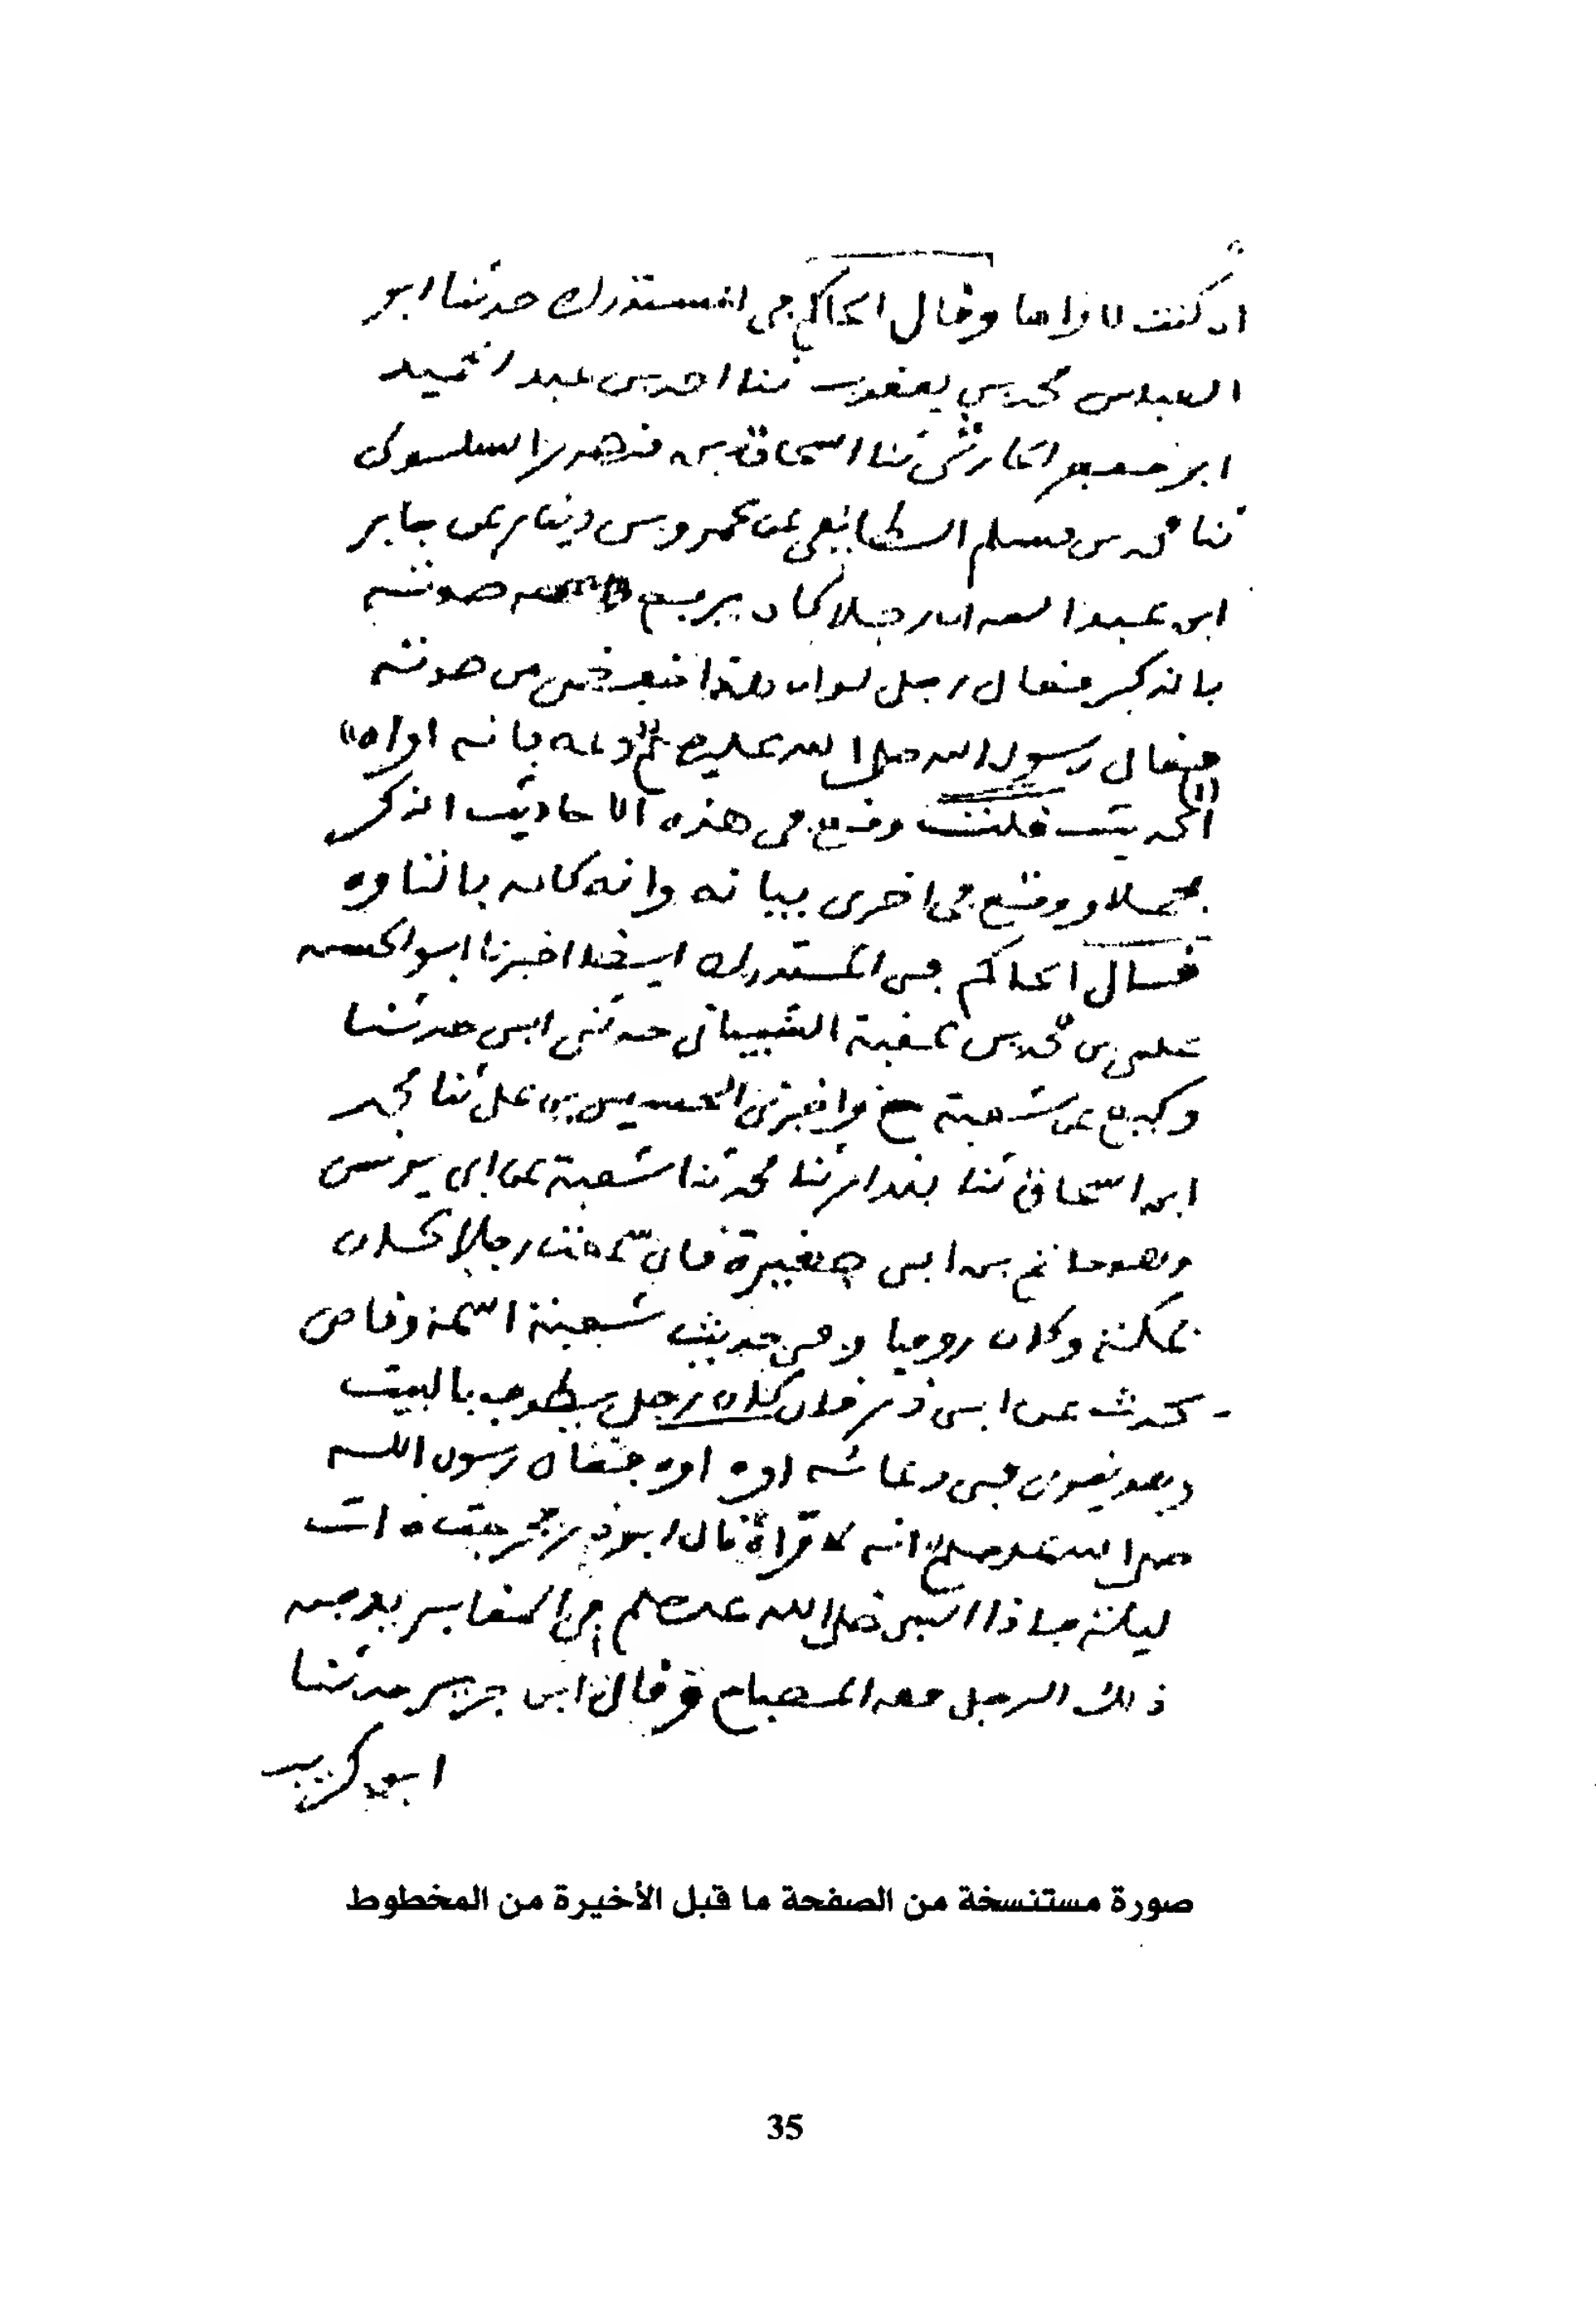 ان كنت لاواها وقال الحاكم في المستدرك حدثنا ابو
العباس محمد بن يعقوب ثنا احمد بن عبد الحميد
ابو جعفر الحارثي ثنا اسحاق بن منصور السلولي
ثنا محمد بن مسلم الطايفي عن عمرو بن دينار عن جابر
ابن عبد الله ان رجلا كان يرفع صوته
بالذكر فقال رجل لو ان هذا خفض من صوته
فقال رسول الله صلى الله عليه وسلم "دعه بانه اواه"
الحديث قلت وقع في هذه الاحاديث الذكر
مجملا ووقع في اخرى بيانه وانه كان بالتاوه
فقال الحاكم في المستدرك ايضا اخبرنا ابو الحسن
علي بن محمد بن عقبة الشيباني حدثني ابي حدثنا
وكيع عن شعبة ح واخبرني الحسين بن علي ثنا محمد
ابن اسحاق ثنا بندار ثنا محمد ثنا شعبة عن ابي يونس
وهو حاتم بن ابي صغيرة قال سمعت رجلا كان
بمكة وكان روميا وفي حديث شعبة اسمه وقاص
يحدث عن ابي ذر قال كان رجل يطوف بالبيت
وهو يقول في دعائه اوه اوه فقال رسول الله
صلى الله عليه وسلم "انه لاواه" قال ابو ذر فخرجت ذات
ليلة فاذا النبي صلى الله عليه وسلم في المقابر يدفن
ذلك الرجل معه المصباح وقال ابن جرير حدثنا
ابو كريب
صورة مستنسخة من الصفحة ما قبل الأخيرة من المخطوط
35